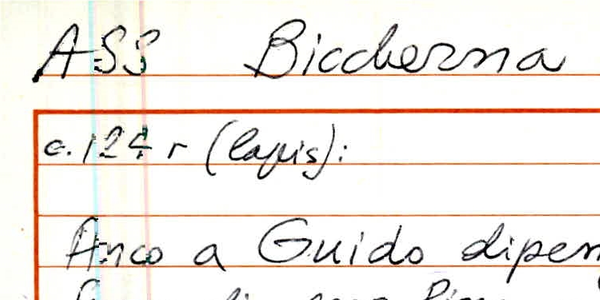 ASS Biccherna
c. 124 r (lapis):
Anco a Guido dipen